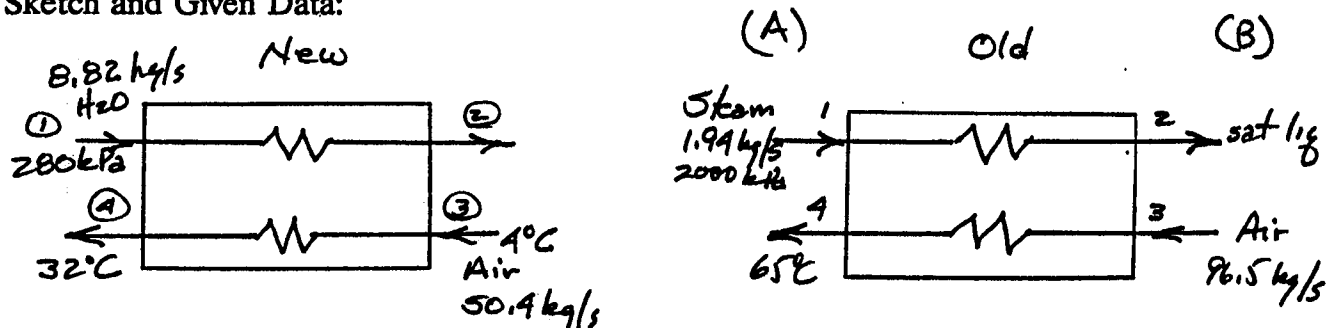 Sketch and Given Data:
New
8.82 kg/s
H2O
①
280kPa
②
④
32°C
③
4°C
Air
50.4 kg/s
(A)
Old
(B)
Steam
1.94 kg/s
2000 kPa
1
2
sat liq
4
65°C
3
Air
96.5 kg/s